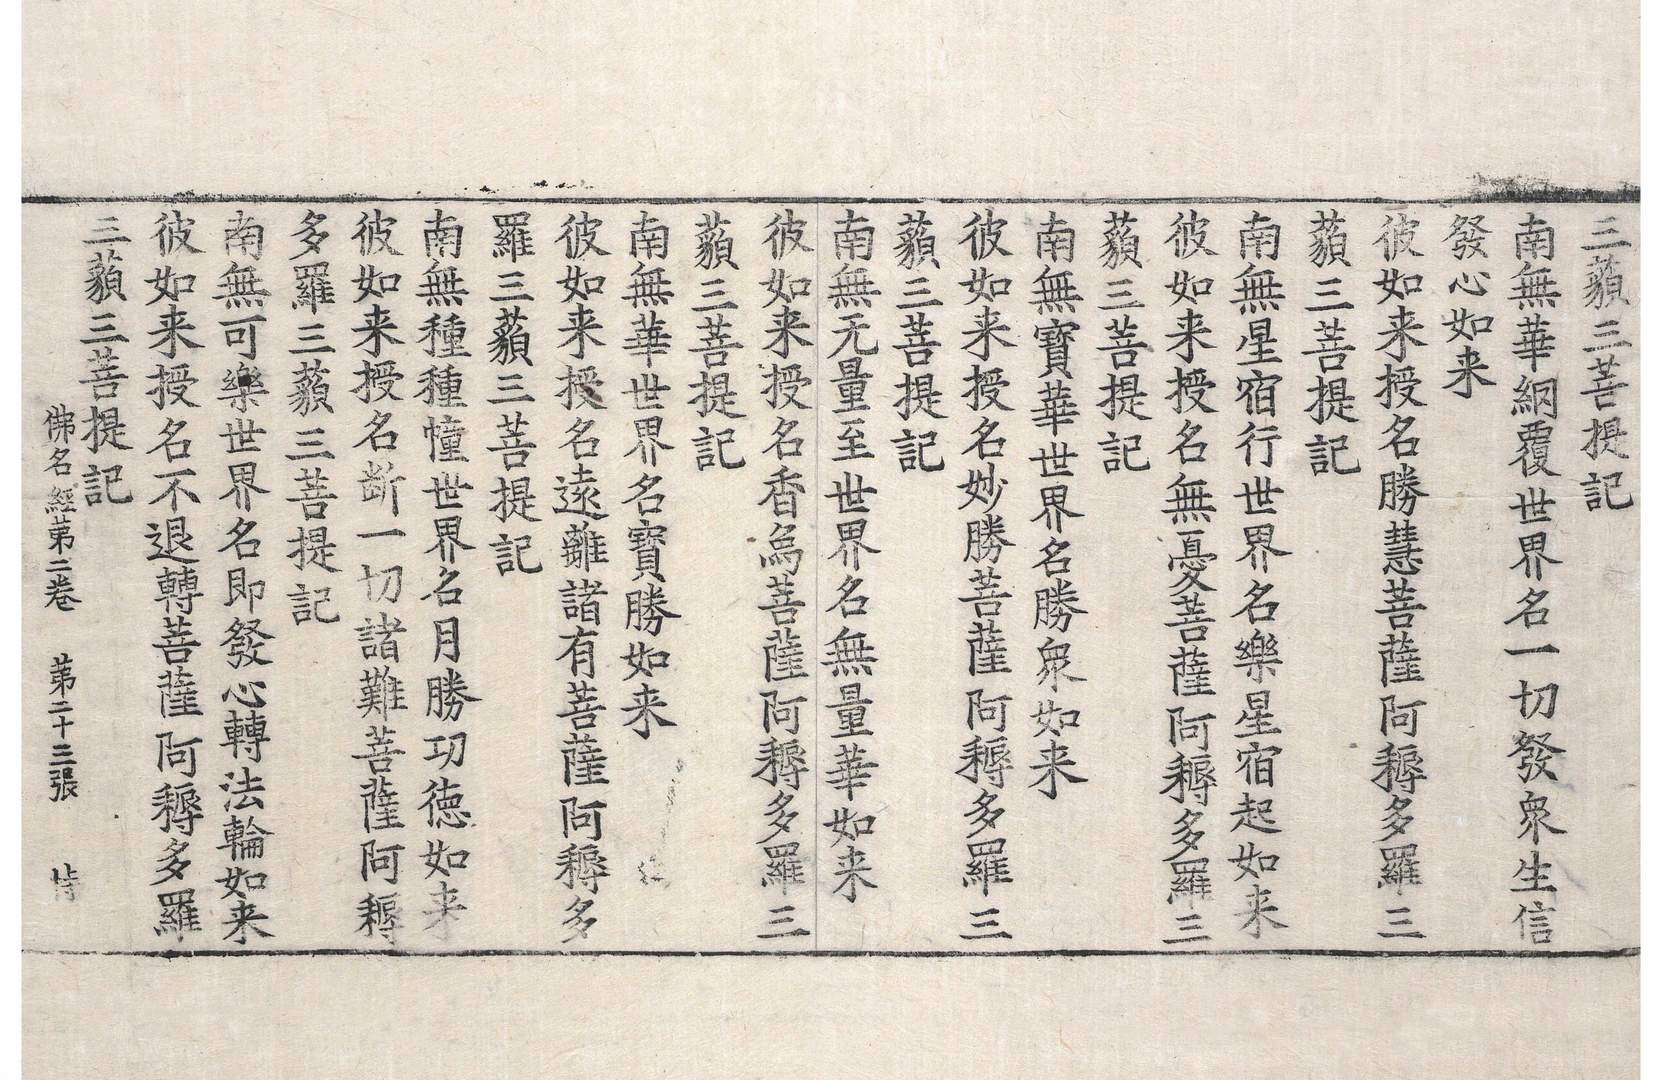 三藐三菩提記
南無華網覆世界名一切發衆生信
發心如来
彼如来授名勝慧菩薩阿耨多羅三
藐三菩提記
南無星宿行世界名樂星宿起如来
彼如来授名無憂菩薩阿耨多羅三
藐三菩提記
南無寶華世界名勝衆如来
彼如来授名妙勝菩薩阿耨多羅三
藐三菩提記
南無无量至世界名無量華如来
彼如来授名香烏菩薩阿耨多羅三
藐三菩提記
南無華世界名寶勝如来
彼如来授名遠離諸有菩薩阿耨多
羅三藐三菩提記
南無種種幢世界名月勝功德如来
彼如来授名断一切諸難菩薩阿耨
多羅三藐三菩提記
南無可樂世界名即發心轉法輪如来
彼如来授名不退轉菩薩阿耨多羅
三藐三菩提記
佛名經第二卷 第二十三張 恃